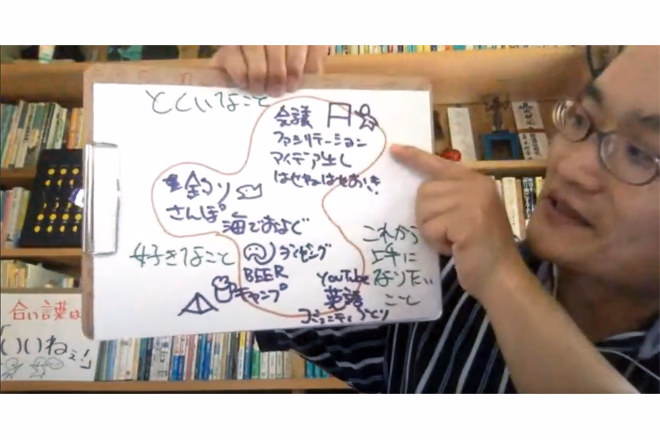 とくいなこと
会議
ファシリテーション
アイデア出し
釣り
さんぽ
海でおよぐ
好きなこと
ダイビング
BEER
キャンプ
これから
上手に
なりたい
こと
YouTube
英語
コミュニティづくり
合い言葉は
「いいねぇ!」